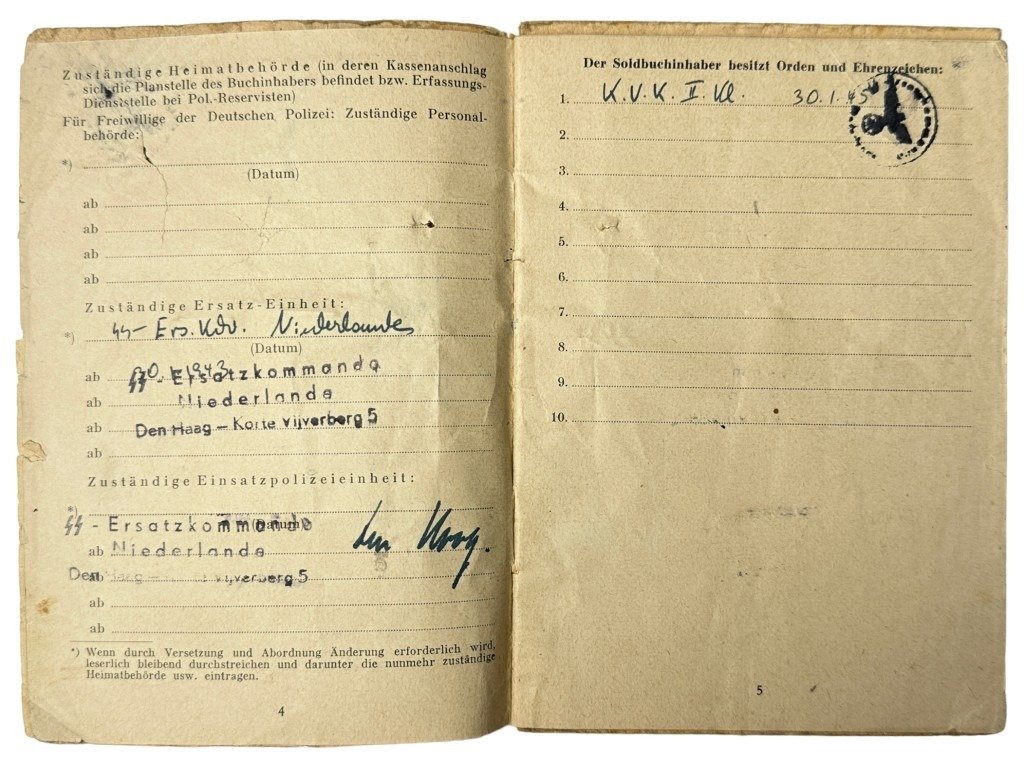 Zuständige Heimatbehörde (in deren Kassenanschlag
sich die Planstelle des Buchinhabers befindet bzw. Erfassungs-
Dienststelle bei Pol.-Reservisten)
Für Freiwillige der Deutschen Polizei: Zuständige Personal-
behörde:
*)
(Datum)
ab
ab
ab
ab
Zuständige Ersatz-Einheit:
*) SS- Ers. Kdo. Niederlande
(Datum)
ab 1943
SS-Ersatzkommando
ab Niederlande
ab Den Haag – Korte Vijverberg 5
ab
Zuständige Einsatzpolizeieinheit:
*)
SS-Ersatzkommando (Datum)
ab Niederlande
Den Haag.
ab Den Haag – Vijverberg 5
ab
ab
*) Wenn durch Versetzung und Abordnung Änderung erforderlich wird,
leserlich bleibend durchstreichen und darunter die nunmehr zuständige
Heimatbehörde usw. eintragen.
4
Der Soldbuchinhaber besitzt Orden und Ehrenzeichen:
1. K.V.K. II. Kl. 30.1.45
2.
3.
4.
5.
6.
7.
8.
9.
10.
5